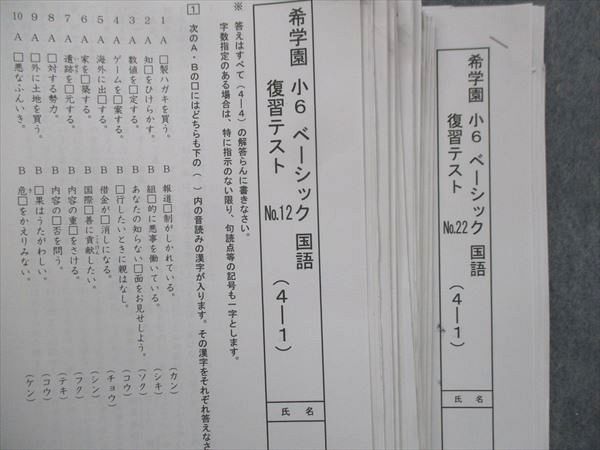 希学園 小6 ベーシック 国語
復習テスト No.22 (4―1)
氏名
希学園 小6 ベーシック 国語
復習テスト No.12 (4―1)
氏名
※ 答えはすべて(4―4)の解答らんに書きなさい。
字数指定のある場合は、特に指示のない限り、句読点等の記号も一字とします。
1 次のA・Bの□にはどちらも下の( )内の音読みの漢字が入ります。その漢字をそれぞれ答えなさ
1 A □製ハガキを買う。 B 報道□制がしかれている。 (カン)
2 A 知□をひけらかす。 B 組□的に悪事を働いている。 (シキ)
3 A 数値を□定する。 B あなたの知らない□面をお見せしよう。 (ソク)
4 A ゲームを□案する。 B □行したいときに親はなし。 (コウ)
5 A 海外に出□する。 B 借金が□消しになる。 (チョウ)
6 A 家を□築する。 B 国際□善に貢献したい。 (シン)
7 A 遺跡を□元する。 B 内容の重□をさける。 (フク)
8 A □対する勢力。 B 内容の□否を問う。 (テキ)
9 A □外に土地を買う。 B □果はうたがわしい。 (コウ)
10 A □悪なふんいき。 B 危□をかえりみない。 (ケン)